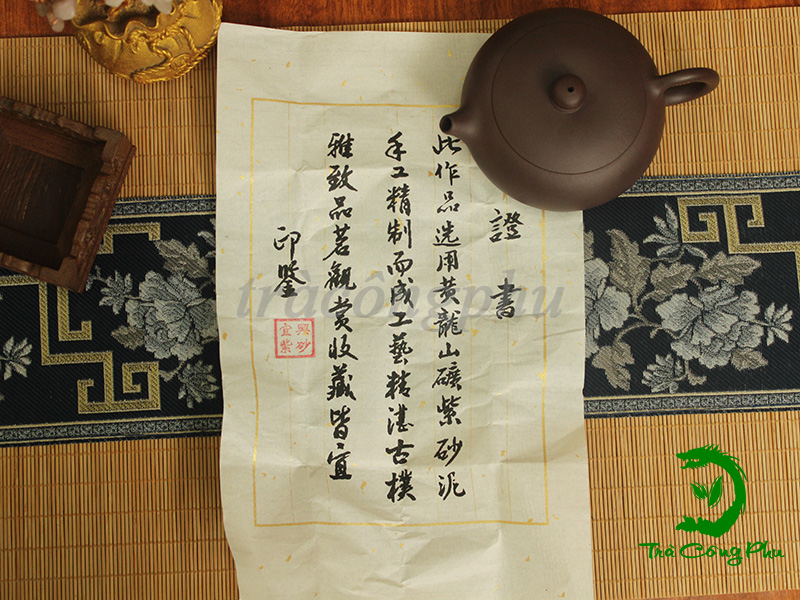 證書
此作品选用黄龍山礦紫砂泥
手工精制而成工藝精湛古樸
雅致品茗觀赏收藏皆宜
印鑒
宜興紫砂
tràcôngphu
Trà Công Phu